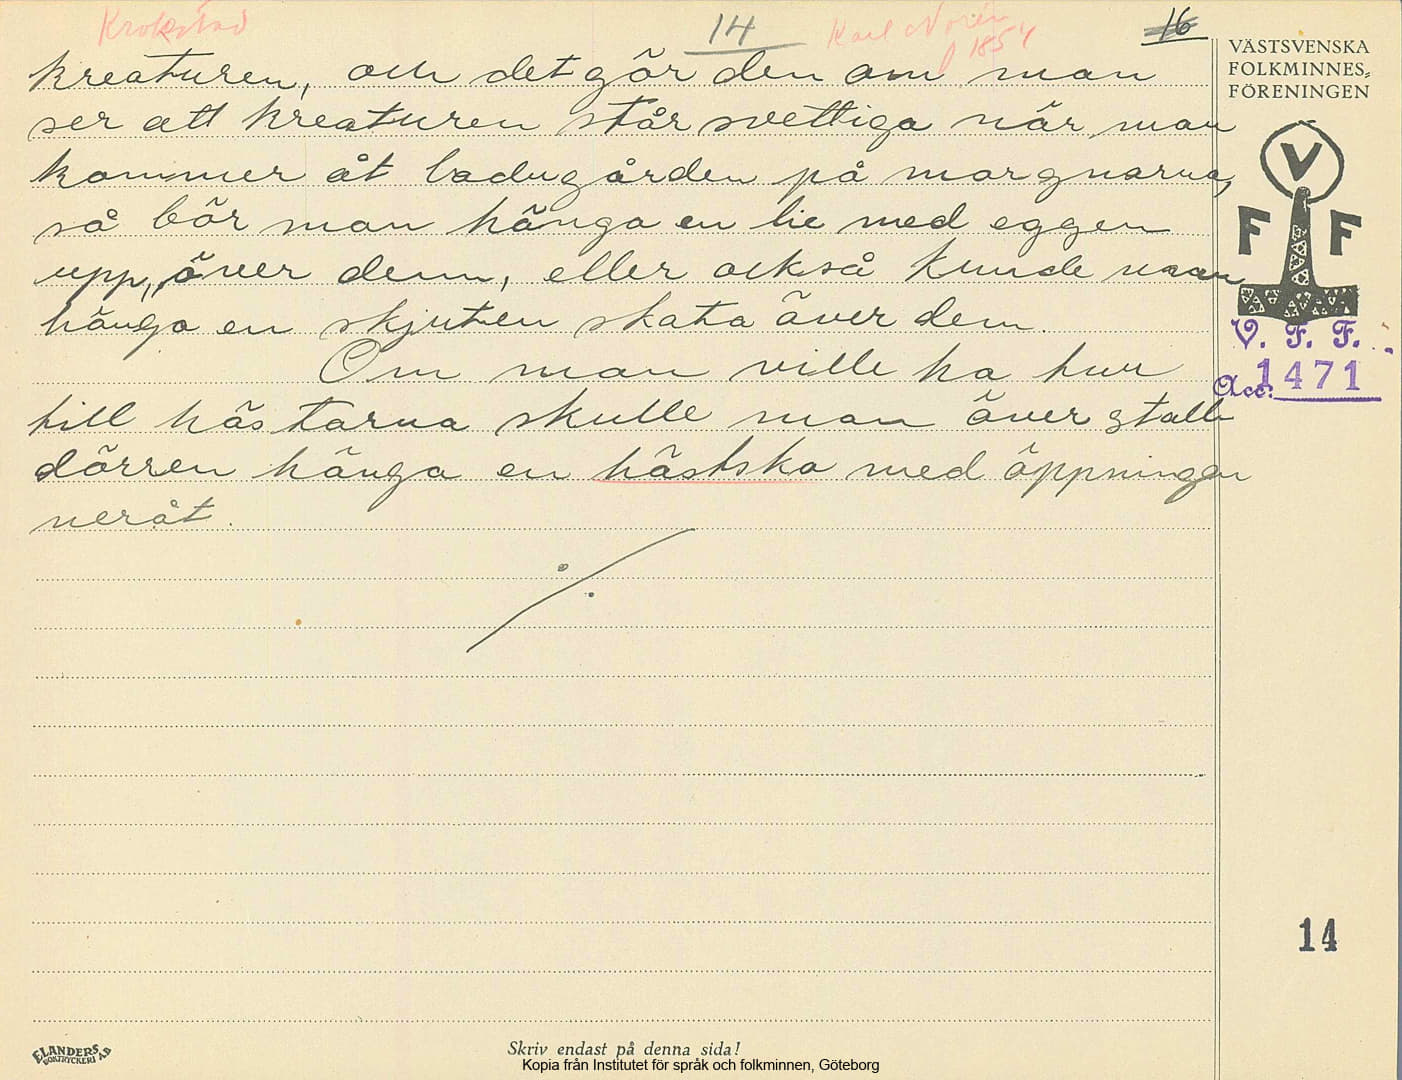 Krokstad
14
Karl Norén
f 1854
16
kreaturen, och det gör den om man
ser att kreaturen står svettiga när man
kommer åt ladugården på morgnarna,
så bör man hänga en lie med eggen
upp, över dem, eller också kunde man
hänga en skjuten skata över dem.
Om man ville ha tur
till hästarna skulle man över stall
dörren hänga en hästsko med öppningen
neråt.
VÄSTSVENSKA
FOLKMINNES=
FÖRENINGEN
V
F F
V. F. F.
Acc: 1471
14
ELANDERS
BOKTRYCKERI AB
Skriv endast på denna sida!
Kopia från Institutet för språk och folkminnen, Göteborg